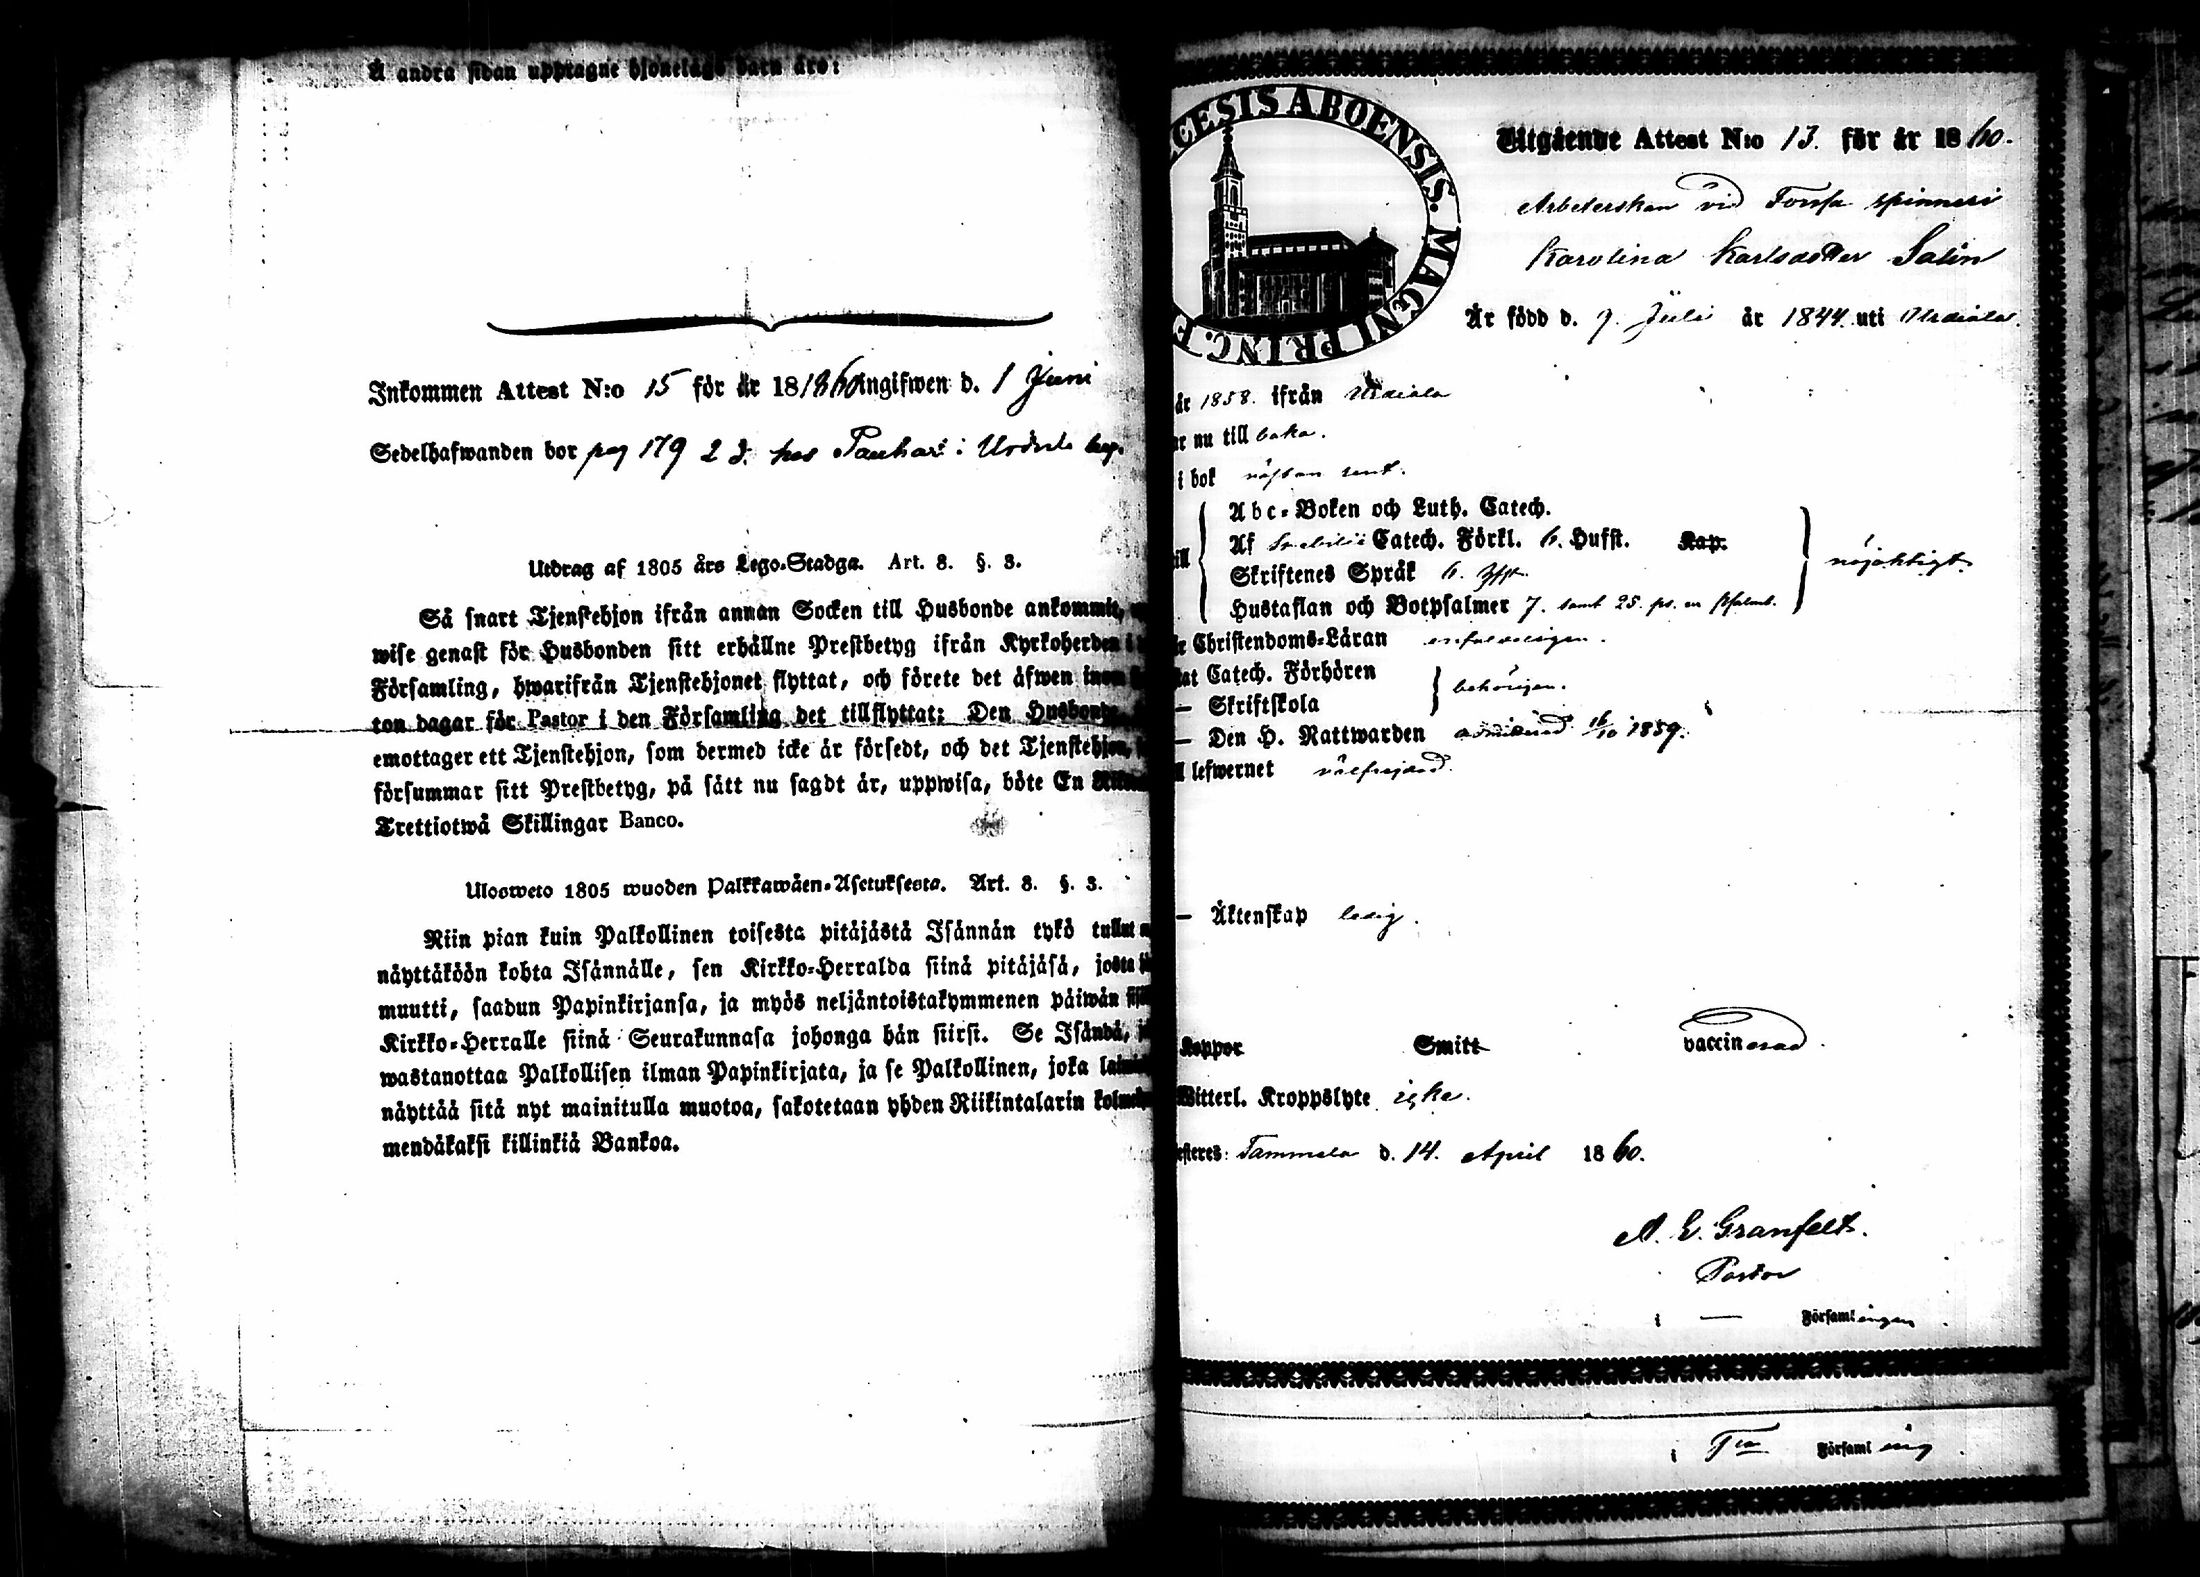 Å andra sidan upptagne hjonelags barn äro:
Inkommen Attest N:o 15 för år 18 1860 ingifwen d. 1 Juni
Sedelhafwanden bor pag 179 2 d. hos i Urdiala by.
Utdrag af 1805 års Lego-Stadga. Art. 8. §. 3.
Så snart Tjenstehjon ifrån annan Socken till Husbonde ankommit,
wise genast för Husbonden sitt erhållne Prestbetyg ifrån Kyrkoherden i
Församling, hwarifrån Tjenstehjonet flyttat, och förete det äfwen inom
ton dagar för Pastor i den Församling det tillflyttat: Den Husbonde,
emottager ett Tjenstehjon, som dermed icke är försedt, och det Tjenstehjon,
försummar sitt Prestbetyg, på sätt nu sagdt är, uppwisa, böte En
Trettiotwå Skillingar Banco.
Ulosweto 1805 wuoden Palkkawäen-Asetuksesta. Art. 8. §. 3.
Niin pian kuin Palkollinen toisesta pitäjästä Isännän tykö tullut
näyttäköön kohta Isännälle, sen Kirkko-Herralda siinä pitäjäsä, josta
muutti, saadun Papinkirjansa, ja myös neljäntoistakymmenen päiwän
Kirkko-Herralle siinä Seurakunnasa johonga hän siirst. Se Isändä,
wastanottaa Palkollisen ilman Papinkirjata, ja se Palkollinen, joka
näyttää sitä nyt mainitulla muotoa, sakotetaan yhden Riikintalarin
mendäkaksi killinkiä Bankoa.
CESIS ABOENSIS. MAGNI PRINC. F
Utgående Attest N:o 13. för år 1860.
Arbeterskan vid Forssa spinneri
Karolina Karlsdotter Salin
Är född d. 9. Juli år 1844 uti Urdiala.
år 1858. ifrån Urdiala
nu till baka.
i bok nästan rent.
Abc-Boken och Luth. Catech.
Af Svebilii Catech. Förkl. 6. Hufst. Kap.
Skriftenes Språk 6. Hfst.
Hustaflan och Botpsalmer 7. samt 25. ps. en psalmb.
nöjaktigt
Christendoms-Läran enfaldeligen.
Catech. Förhören
— Skriftskola
behörigen.
— Den H. Nattwarden admitterad 16/10 1859.
lefwernet välfrejdad.
— Äktenskap ledig.
Koppor Smitt vaccinerad.
Witterl. Kroppslyte icke.
Tammela d. 14. April 1860.
A. E. Granfelt.
Pastor
i — Församlingen
i Församling